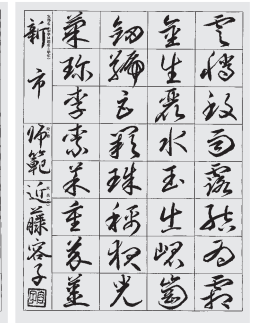 雲騰致雨露結為霜
金生麗水玉出崑崗
劒號巨闕珠稱夜光
菓珍李柰菜重芥薑
新市 師範 近藤容子